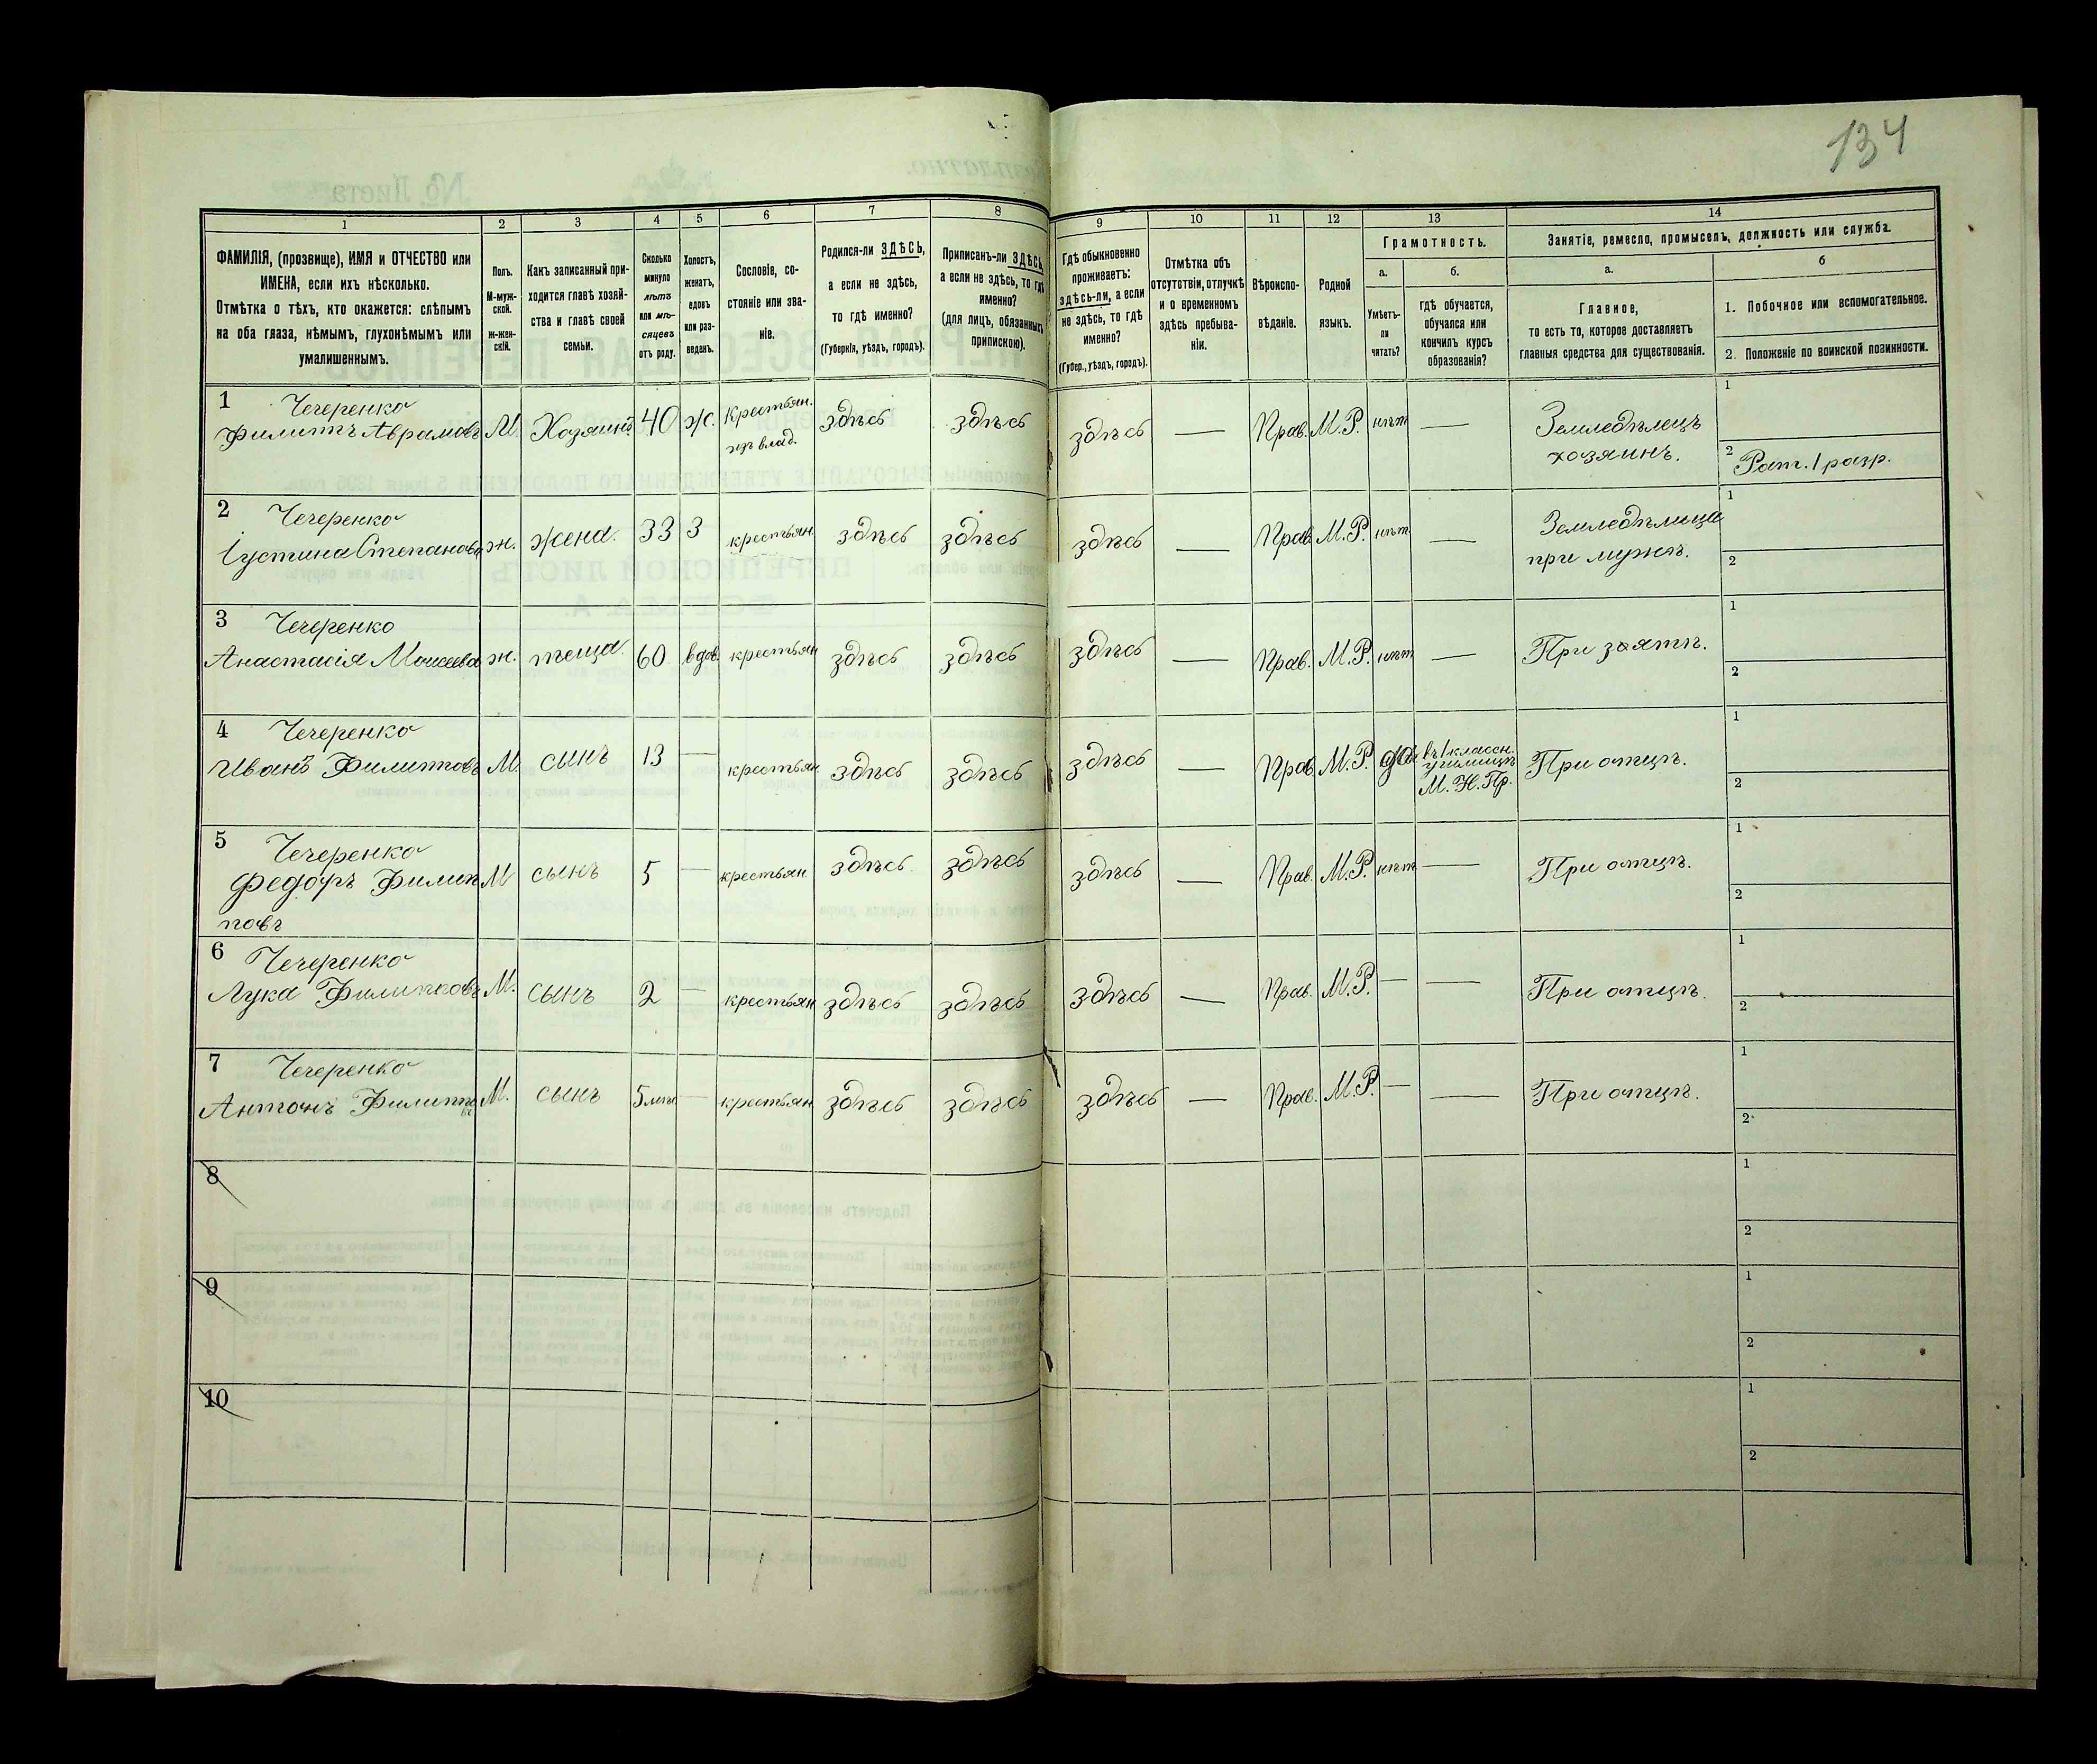 134
1
2
3
4
5
6
7
8
9
10
11
12
13
14
ФАМИЛІЯ, (прозвище), ИМЯ и ОТЧЕСТВО или
ИМЕНА, если ихъ нѣсколько.
Отмѣтка о тѣхъ, кто окажется: слѣпымъ
на оба глаза, нѣмымъ, глухонѣмымъ или
умалишеннымъ.
Полъ.
М-муж-
ской.
Ж-жен-
скій.
Какъ записанный при-
ходится главѣ хозяй-
ства и главѣ своей
семьи.
Сколько
минуло
лѣтъ
или мѣ-
сяцевъ
отъ роду.
Холостъ,
женатъ,
вдовъ
или раз-
веденъ.
Сословіе, со-
стояніе или зва-
ніе.
Родился-ли ЗДѢСЬ,
а если не здѣсь,
то гдѣ именно?
(Губернія, уѣздъ, городъ).
Приписанъ-ли ЗДѢСЬ,
а если не здѣсь, то гдѣ
именно?
(для лицъ, обязанныхъ
припискою).
Гдѣ обыкновенно
проживаетъ:
здѣсь-ли, а если
не здѣсь, то гдѣ
именно?
(Губер., уѣздъ, городъ).
Отмѣтка объ
отсутствіи, отлучкѣ
и о временномъ
здѣсь пребыва-
ніи.
Вѣроиспо-
вѣданіе.
Родной
языкъ.
Грамотность.
а.
Умѣетъ-
ли
читать?
б.
гдѣ обучается,
обучался или
кончилъ курсъ
образованія?
Занятіе, ремесло, промыселъ, должность или служба.
а.
Главное,
то есть то, которое доставляетъ
главныя средства для существованія.
б
1. Побочное или вспомогательное.
2. Положеніе по воинской повинности.
1 Чечеренко
Филиппъ Аврамовъ М. Хозяинъ 40 ж. Крестьян. здѣсь здѣсь здѣсь — Прав. М.Р. нѣтъ — Земледѣлецъ 1
влад. хозяинъ. 2 Рат. 1 разр.
2 Чечеренко
Іустина Степанова ж. жена. 33 З крестьян. здѣсь здѣсь здѣсь — Прав. М.Р. нѣтъ — Земледѣлица 1
при мужѣ. 2
3 Чечеренко
Анастасія Моисеева ж. теща. 60 вдов. крестьян здѣсь здѣсь здѣсь — Прав. М.Р. нѣтъ — При зятѣ. 1
2
4 Чечеренко
Иванъ Филипповъ М. сынъ 13 — крестьян здѣсь здѣсь здѣсь — Прав. М.Р. да въ 1 классн. При отцѣ. 1
училищѣ
М. Н. Пр. 2
5 Чечеренко
Федоръ Филип М сынъ 5 — крестьян здѣсь здѣсь здѣсь — Прав. М.Р. нѣтъ — При отцѣ. 1
повъ 2
6 Чечеренко
Лука Филипповъ М. сынъ 2 — крестьян здѣсь здѣсь здѣсь — Прав. М.Р. — — При отцѣ. 1
2
7 Чечеренко
Антонъ Филиппо М. сынъ 5 мѣс — крестьян здѣсь здѣсь здѣсь — Прав. М.Р. — — При отцѣ. 1
въ 2
8 1
2
9 1
2
10 1
2